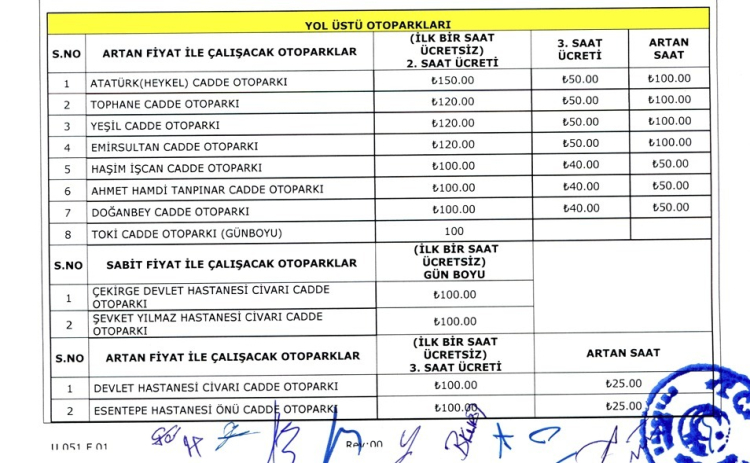 YOL ÜSTÜ OTOPARKLARI
S.NO ARTAN FİYAT İLE ÇALIŞACAK OTOPARKLAR (İLK BİR SAAT ÜCRETSİZ) 2. SAAT ÜCRETİ 3. SAAT ÜCRETİ ARTAN SAAT
1 ATATÜRK(HEYKEL) CADDE OTOPARKI ₺150.00 ₺50.00 ₺100.00
2 TOPHANE CADDE OTOPARKI ₺120.00 ₺50.00 ₺100.00
3 YEŞİL CADDE OTOPARKI ₺120.00 ₺50.00 ₺100.00
4 EMİRSULTAN CADDE OTOPARKI ₺120.00 ₺50.00 ₺100.00
5 HAŞİM İŞCAN CADDE OTOPARKI ₺100.00 ₺40.00 ₺50.00
6 AHMET HAMDİ TANPINAR CADDE OTOPARKI ₺100.00 ₺40.00 ₺50.00
7 DOĞANBEY CADDE OTOPARKI ₺100.00 ₺40.00 ₺50.00
8 TOKİ CADDE OTOPARKI (GÜNBOYU) 100
S.NO SABİT FİYAT İLE ÇALIŞACAK OTOPARKLAR (İLK BİR SAAT ÜCRETSİZ) GÜN BOYU
1 ÇEKİRGE DEVLET HASTANESİ CİVARI CADDE OTOPARKI ₺100.00
2 ŞEVKET YILMAZ HASTANESİ CİVARI CADDE OTOPARKI ₺100.00
S.NO ARTAN FİYAT İLE ÇALIŞACAK OTOPARKLAR (İLK BİR SAAT ÜCRETSİZ) 3. SAAT ÜCRETİ ARTAN SAAT
1 DEVLET HASTANESİ CİVARI CADDE OTOPARKI ₺100.00 ₺25.00
2 ESENTEPE HASTANESİ ÖNÜ CADDE OTOPARKI ₺100.00 ₺25.00
Rev:00